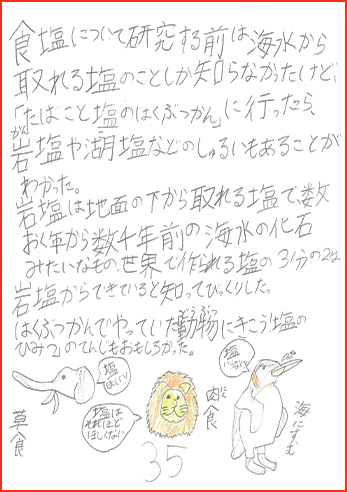 食塩について研究する前は海水から
取れる塩のことしか知らなかったけど、
「たばこと塩のはくぶつかん」に行ったら、
がん
岩塩や湖塩などのしゅるいもあることが
わかった。
岩塩は地面の下から取れる塩で、数
おく年から数千年前の海水の化石
みたいなもの。世界で作られる塩の3分の2は
岩塩からできていると知ってびっくりした。
はくぶつかんでやっていた動物にきこう!塩の
どうぶつ
ひみつ」のてんじもおもしろかった。
塩ほしい!
草食
塩はそれほどほしくない
肉食
にく
塩いらない
海にすむ
35